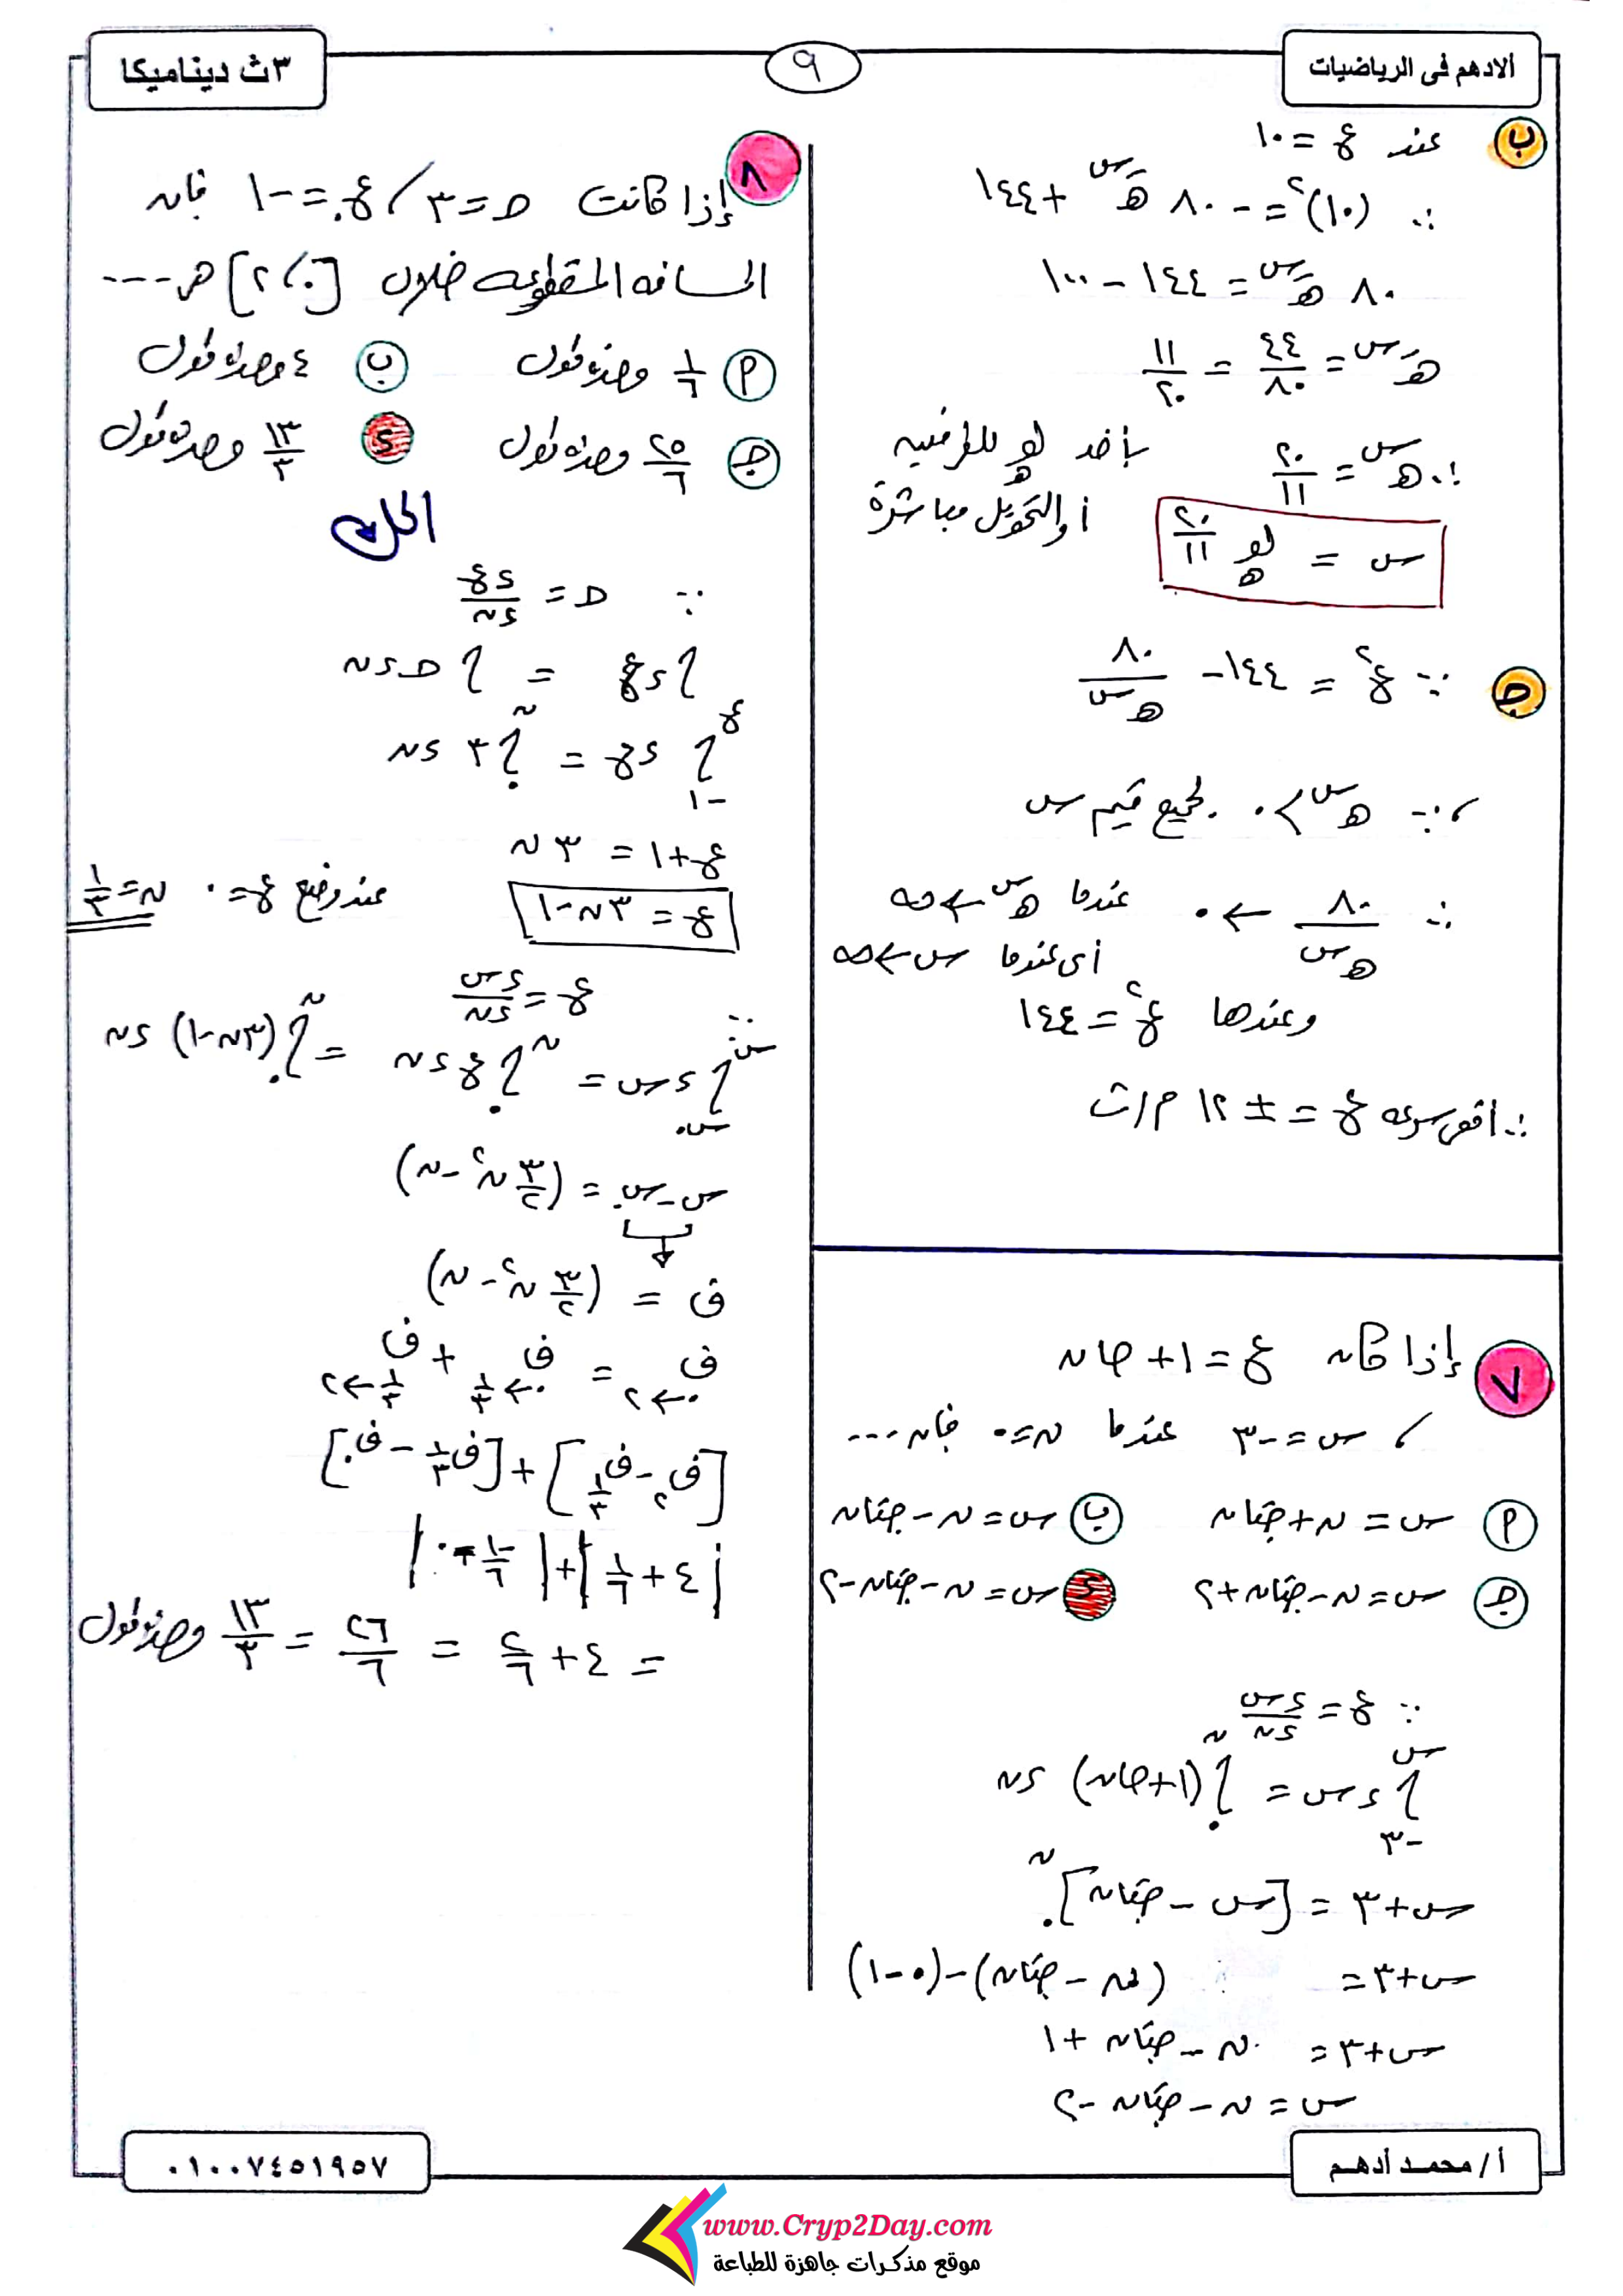 ألادهم فى الرياضيات
٩
٣ث ديناميكا
ب عند ع = ١٠
∴ (١٠)^٢ = -٨٠ هـ^-س + ١٤٤
٨٠ هـ^-س = ١٤٤ - ١٠٠
هـ^-س = ٤٤/٨٠ = ١١/٢٠
∴ هـ^س = ٢٠/١١ بأخد لو هـ للطرفين
أو التحويل مباشرة
س = لو هـ ٢٠/١١
جـ ∵ ع^٢ = ١٤٤ - ٨٠/هـ^س
، ∵ هـ^س > ٠ لجميع قيم س
∴ ٨٠/هـ^س ← ٠ عندما هـ^س ← ∞
أى عندما س ← ∞
وعندها ع^٢ = ١٤٤
∴ أقصى سرعه ع = ± ١٢ م/ث
٧ إذا كان ع = ١ + جا ن
، س = -٣ عندما ن = ٠ فإن ...
أ س = ن + جتا ن
ب س = ن - جتا ن
جـ س = ن - جتا ن + ٢
د س = ن - جتا ن - ٢
∵ ع = ءس/ءن
∫_{-٣}^{س} ءس = ∫_٠^ن (١ + جا ن) ءن
س + ٣ = [س - جتا ن]_٠^ن
س + ٣ = (ن - جتا ن) - (٠ - ١)
س + ٣ = ن - جتا ن + ١
س = ن - جتا ن - ٢
٨ إذا كانت حـ = ٣ ، ع. = -١ فإن
المسافه المقطوعه خلال [٠، ٢] هى ----
أ ١/٦ وحدة طول
ب ٤ وحدة طول
جـ ٢٥/٦ وحدة طول
د ١٣/٣ وحدة طول
الحل
∵ حـ = ءع/ءن
∫ ءع = ∫ حـ ءن
∫_{-١}^ع ءع = ∫_٠^ن ٣ ءن
ع + ١ = ٣ ن
ع = ٣ن - ١ عند وضع ع = ٠ ن = ١/٣
∵ ع = ءس/ءن
∫_{س.}^{س} ءس = ∫_٠^ن ع ءن = ∫_٠^ن (٣ن - ١) ءن
س - س. = (٣/٢ ن^٢ - ن)
ف = (٣/٢ ن^٢ - ن)
ف_{٠←٢} = ف_{٠←١/٣} + ف_{١/٣←٢}
[ف_٢ - ف_{١/٣}] + [ف_{١/٣} - ف_٠]
|٤ + ١/٦| + |-١/٦ - ٠|
= ٤ + ٢/٦ = ٢٦/٦ = ١٣/٣ وحدة طول
أ / محمد أدهم
٠١٠٠٧٤٥١٩٥٧
www.Cryp2Day.com
موقع مذكرات جاهزة للطباعة